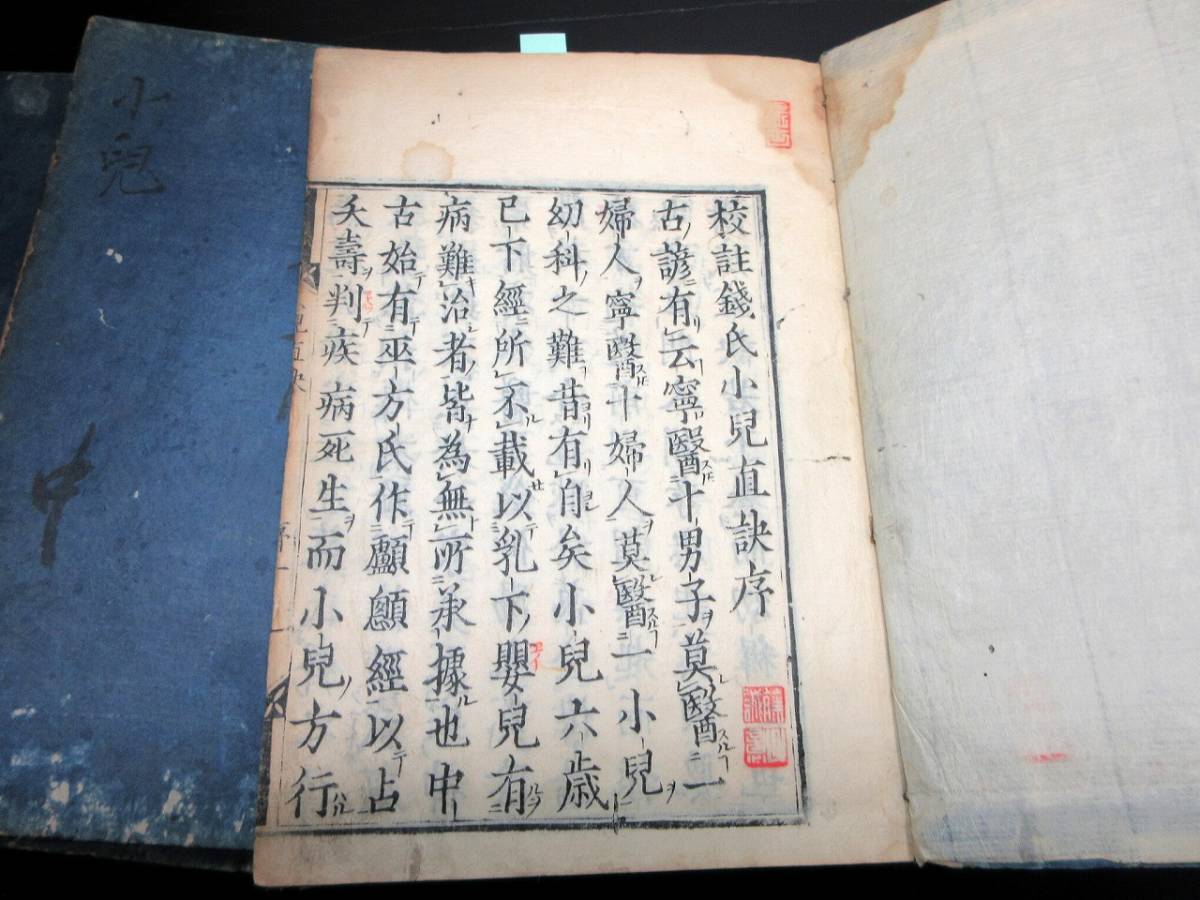 校註錢氏小兒直訣序
古諺有云寧醫十男子莫醫一
婦人寧醫十婦人莫醫一小兒
幼科之難昔有自矣小兒六歲
已下經所不載以乳下嬰兒有
病難治者皆為無所承據也中
古始有巫方氏作顱顖經以占
夭壽判疾病死生而小兒方行
小兒
中